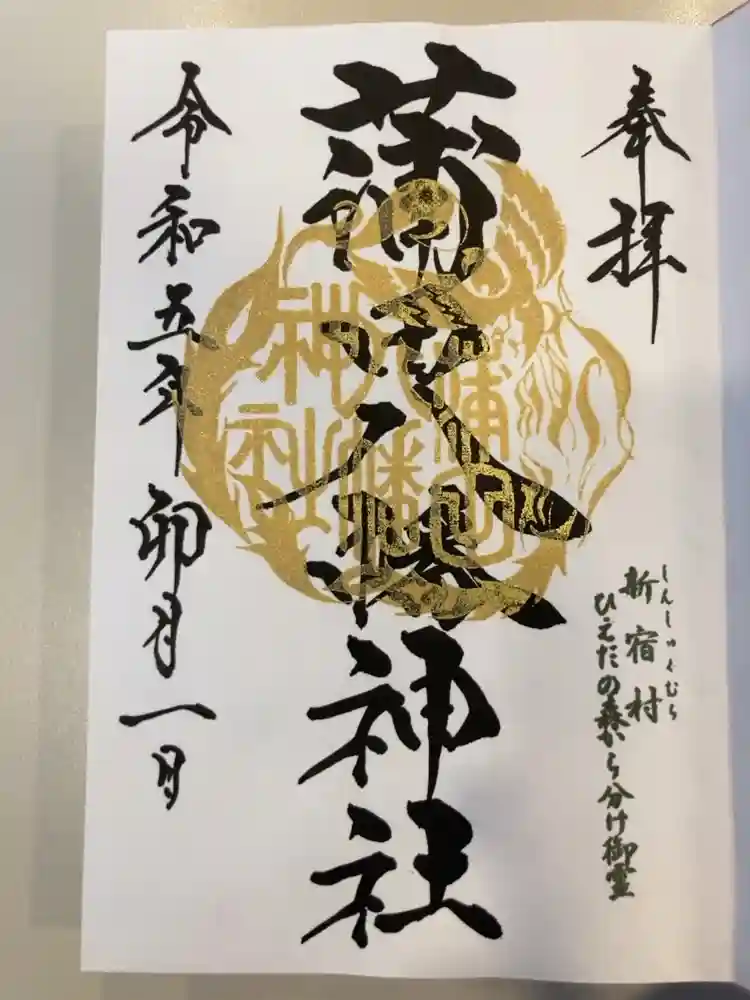 奉拝
しんしゅくむら
新宿村
ひえだの森から分け御霊
蒲田八幡神社
令和五年卯月一日
蒲田
八幡
神社